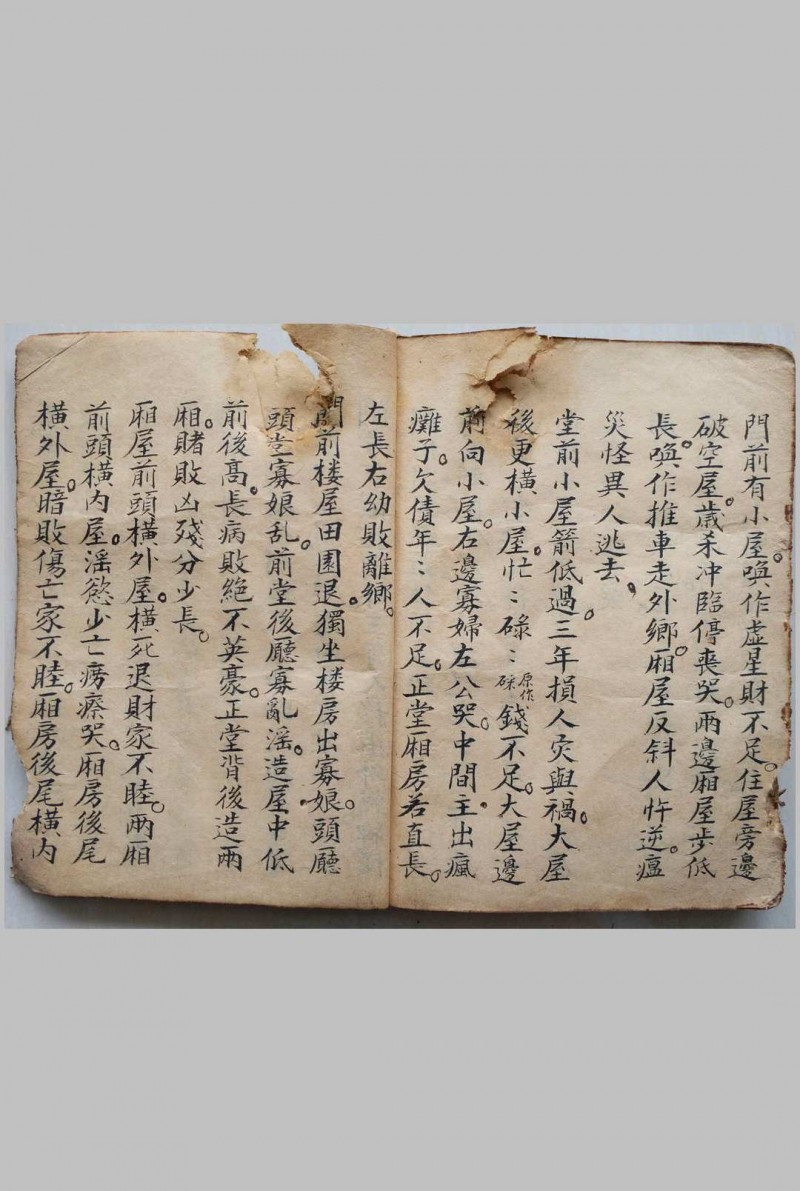 門前有小屋。喚作虛星財不足。住屋旁邊
破空屋。歲杀冲臨停喪哭。兩邊厢屋步低
長。喚作推車走外鄉。厢屋反斜人忤逆。瘟
災怪異人逃去。
堂前小屋箭低過。三年損人灾與禍。大屋
後更橫小屋。忙〻碌〻原作碌錢不足。大屋邊
前向小屋。右邊寡婦左公哭。中間主出瘋
癱子。欠債年〻人不足。正堂厢房若直長。
左長右幼敗離鄉。
門前楼屋田園退。獨坐楼房出寡娘。頭廳
頭堂寡娘乱。前堂後廳寡亂滛。造屋中低
前後高。長病敗絕不英豪。正堂背後造兩
厢。賭敗凶殘分少長。
厢屋前頭橫外屋。橫死退財家不睦。兩厢
前頭橫內屋。滛慾少亡癆瘵哭。厢房後尾
橫外屋。暗敗傷亡家不睦。厢房後尾橫內